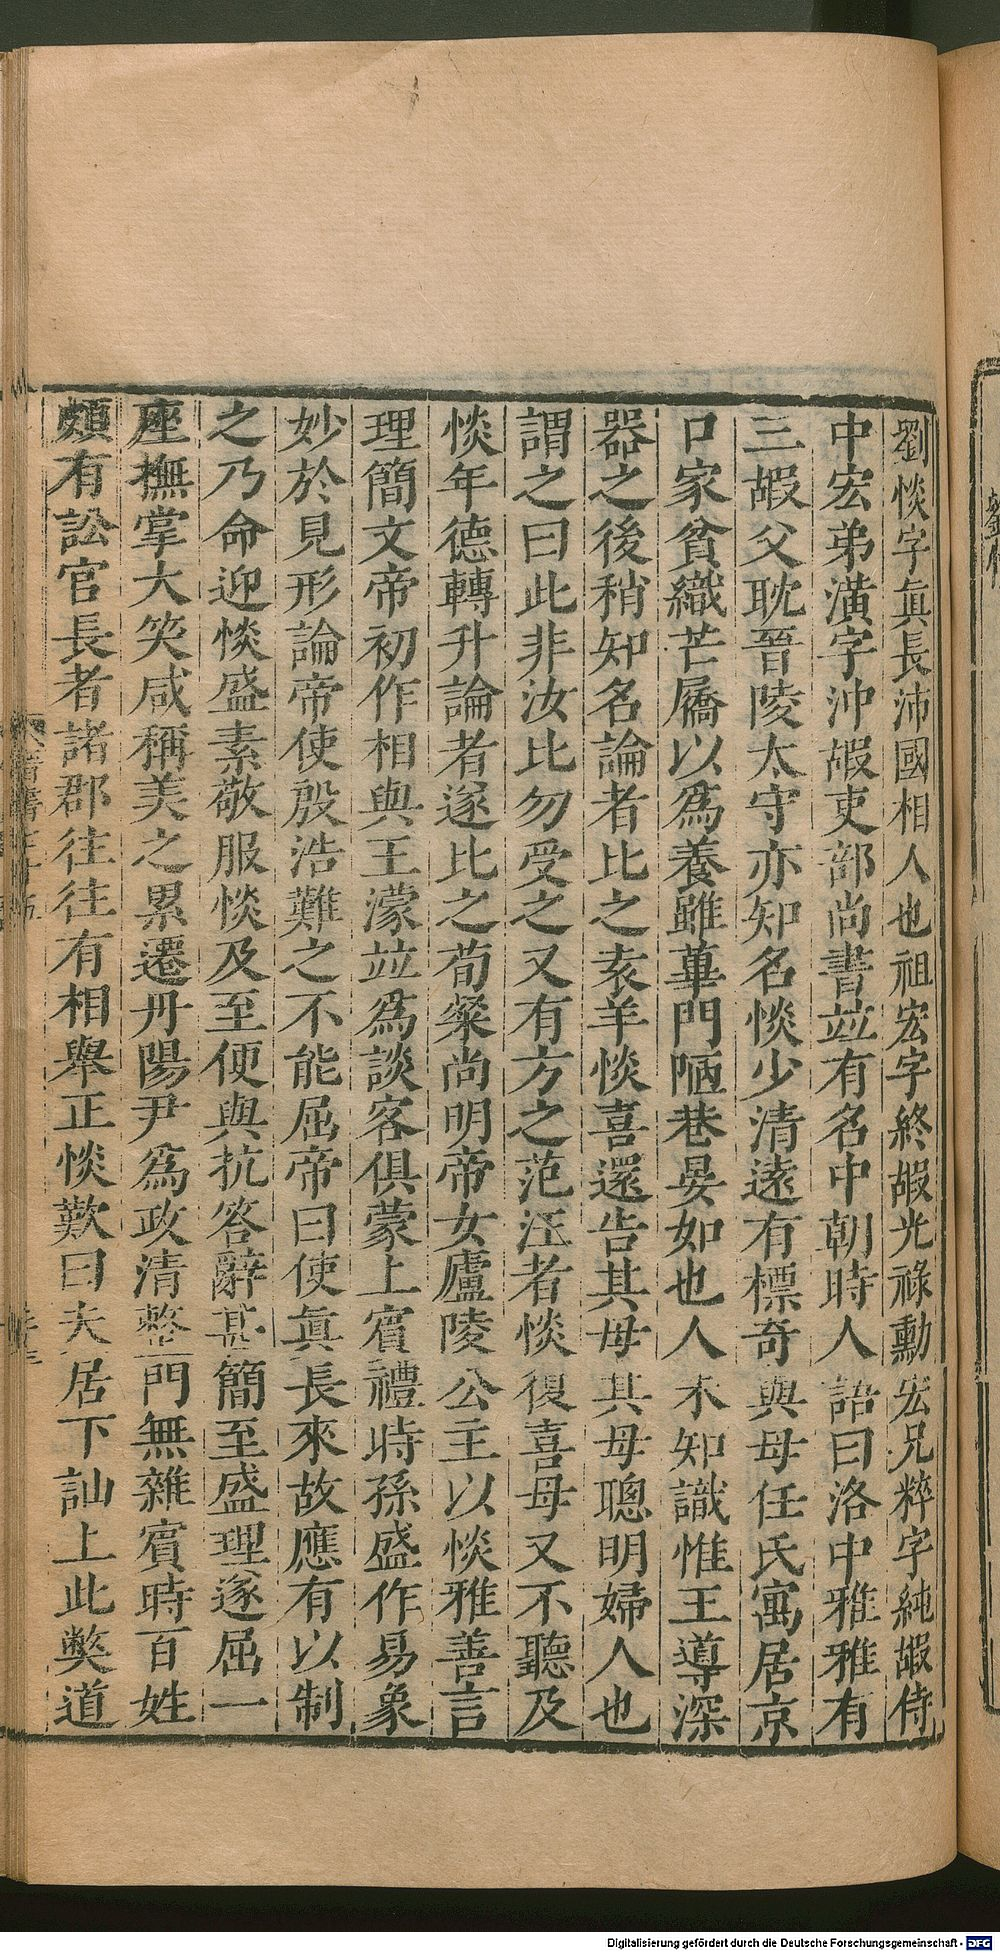 劉惔字眞長沛國相人也祖宏字終嘏光祿勳宏兄粹字純嘏侍
中宏弟潢字沖嘏吏部尚書竝有名中朝時人語曰洛中雅雅有
三嘏父耽晉陵太守亦知名惔少清遠有標奇與母任氏寓居京
口家貧織芒屩以爲養雖蓽門陋巷晏如也人未知識惟王導深
器之後稍知名論者比之袁羊惔喜還告其母其母聰明婦人也
謂之曰此非汝比勿受之又有方之范汪者惔復喜母又不聽及
惔年德轉升論者遂比之荀粲尚明帝女廬陵公主以惔雅善言
理簡文帝初作相與王濛竝爲談客俱蒙上賓禮時孫盛作易象
妙於見形論帝使殷浩難之不能屈帝曰使眞長來故應有以制
之乃命迎惔盛素敬服惔及至便與抗答辭甚簡至盛理遂屈一
座撫掌大笑咸稱美之累遷丹陽尹爲政清整門無雜賓時百姓
頗有訟官長者諸郡往往有相舉正惔歎曰夫居下訕上此獘道
Digitalisierung gefördert durch die Deutsche Forschungsgemeinschaft - DFG